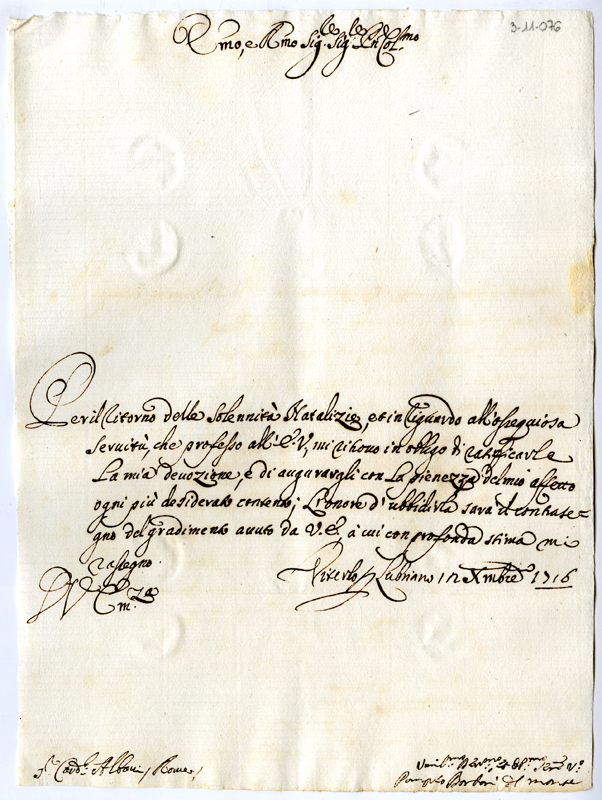 3-11-076
Emo, e Rmo Sig.r Sig.r le le Pn Col.mo
Per il ritorno delle Solennità Natalizie, et in riguardo all'osseguiosa
servitù, che professo all'E.V, mi ritrovo in obligo di ratificarle
La mia devozione, e di augurargli con La pienezza del mio affetto
ogni più desiderato contento; L'onore d'ubbidirla sara il contrase=
gno del gradimento avuto da V. E., à cui con profonda stima mi
rassegno.
Viterbo p Lubriano 12 Xmbre 1716
V. Em.za
Sr Card.l Albani / Roma /
Umil.mo Dev.mo et Obl.mo Ser.re V.o
Pompeo Borboni del monte